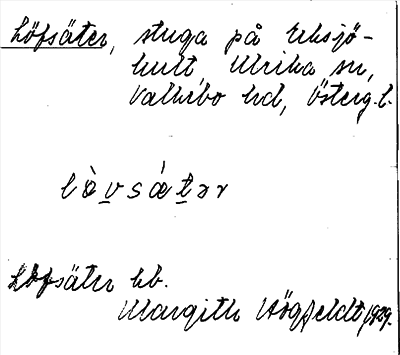 Löfsäter, stuga på Eksjö-
hult Ulrika sn,
Valkebo hd, Österg.l.
lò̀vsátər
Löfsäter hb.
Margith Högfeldt 1929.